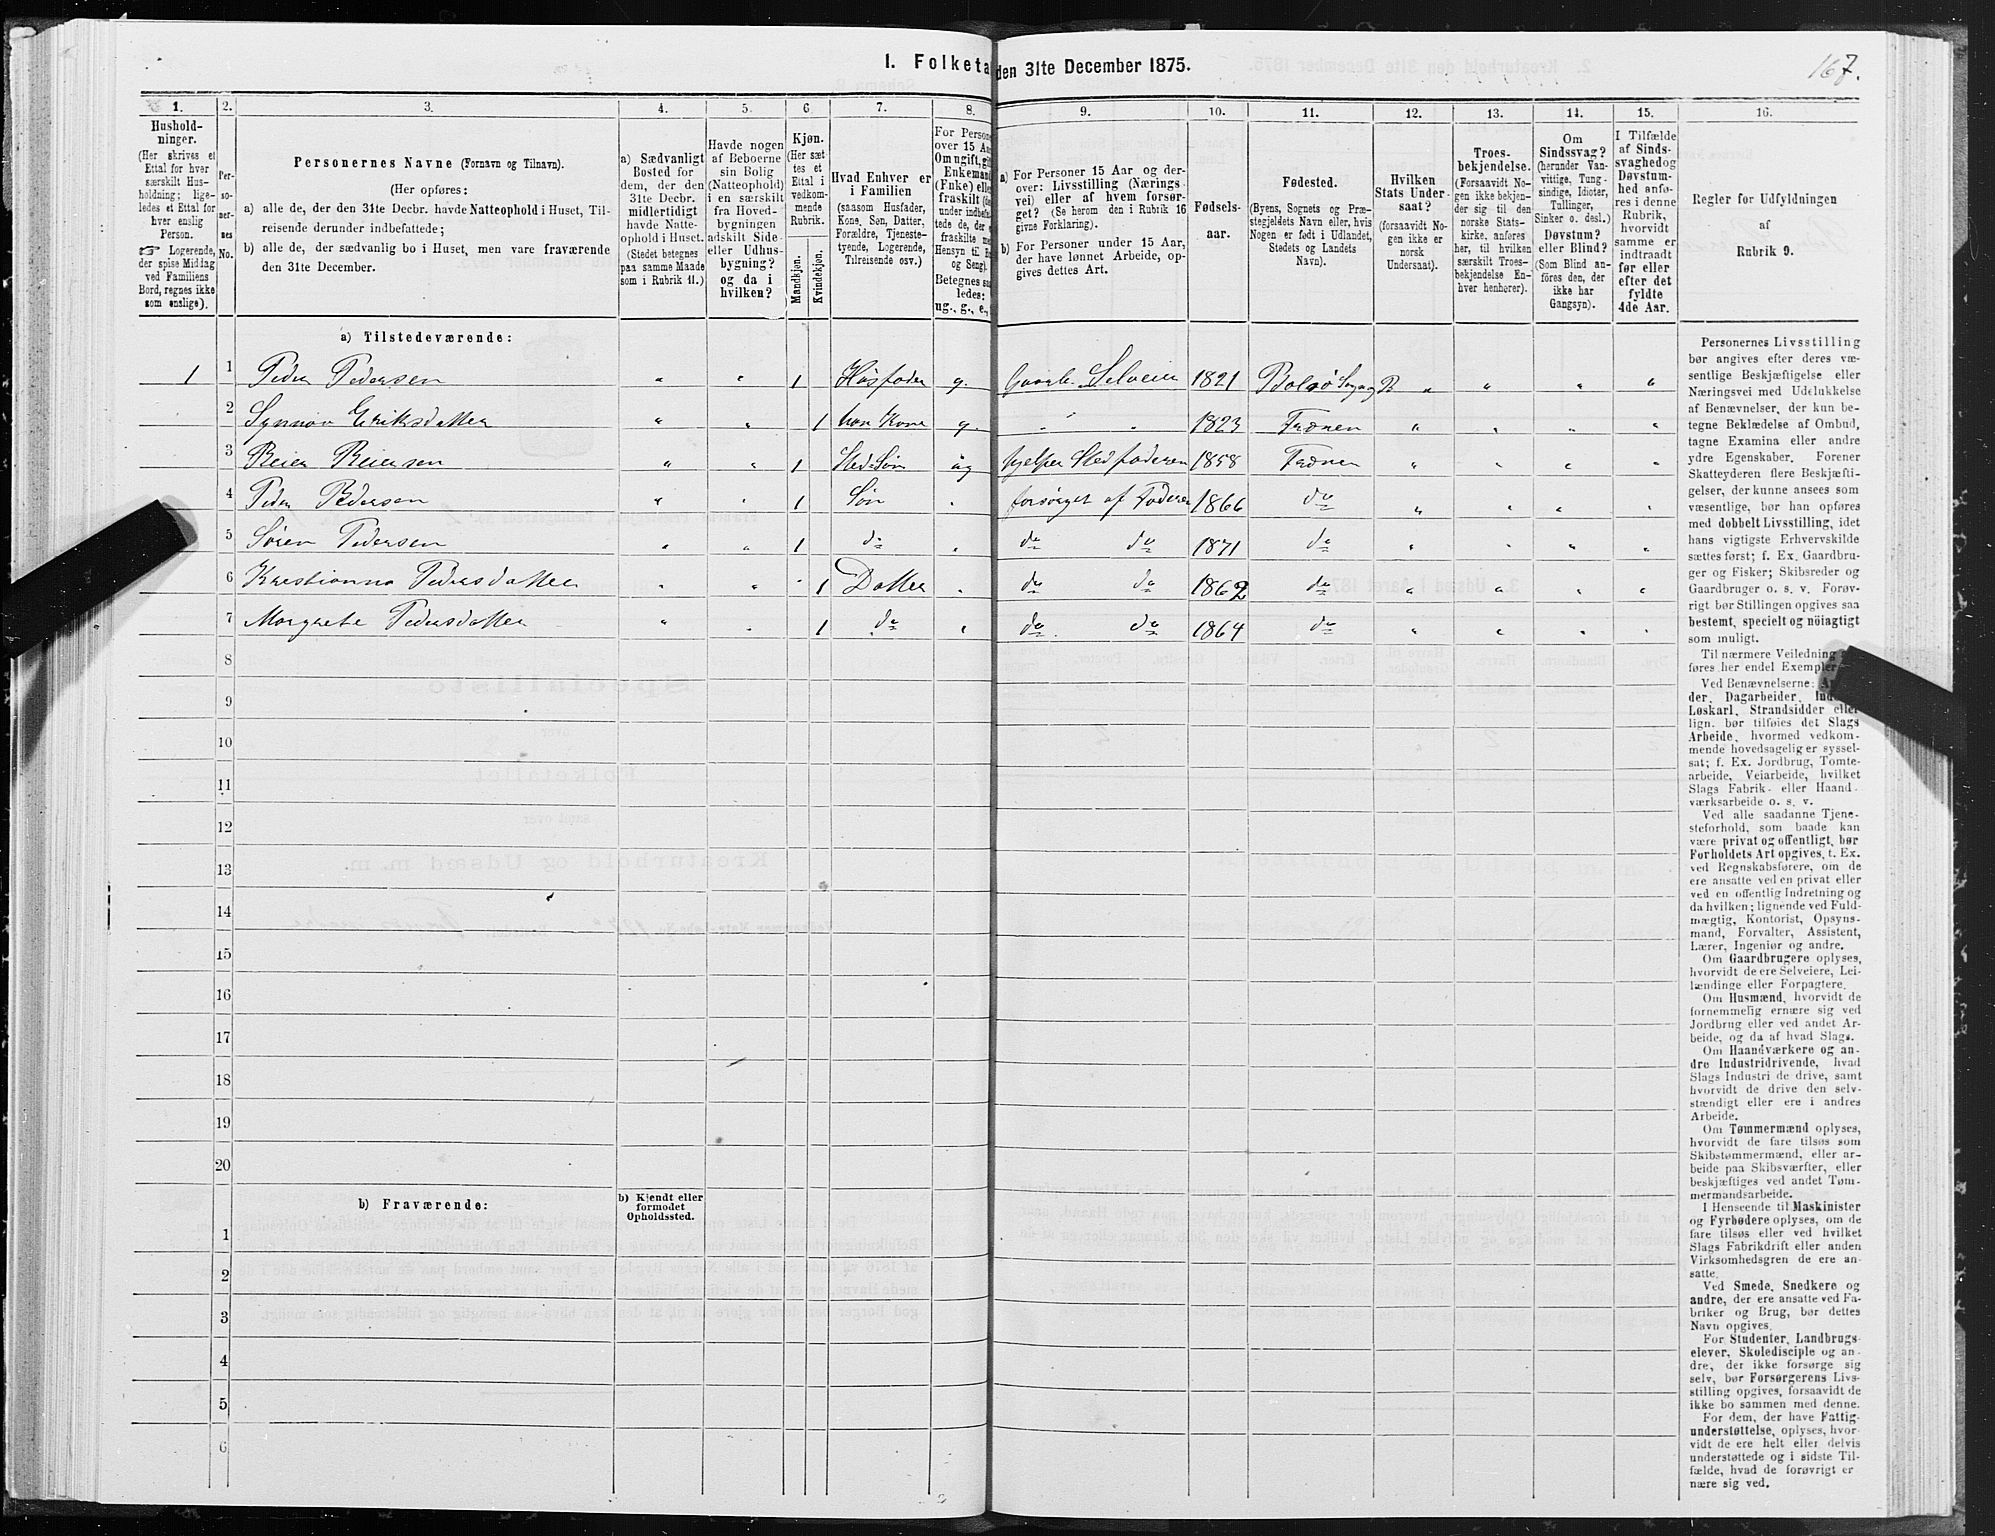 1. Folketa den 31te December 1875.
167.
1. 2. 3. 4. 5. 6 7. 8. 9. 10. 11. 12. 13. 14. 15. 16.
Hushold-
ninger.
(Her skrives et
Ettal for hver
særskilt Hus-
holdning; lige-
ledes et Ettal for
hver enslig
Person.
☞ Logerende,
der spise Middag
ved Familiens
Bord, regnes ikke
som enslige).
Per-
so-
ner-
nes
No.
Personernes Navne (Fornavn og Tilnavn).
(Her opføres:
a) alle de, der den 31te Decbr. havde Natteophold i Huset, Til-
reisende derunder indbefattede;
b) alle de, der sædvanlig bo i Huset, men vare fraværende
den 31te December.
a) Sædvanligt
Bosted for
dem, der den
31te Decbr.
midlertidigt
havde Natte-
ophold i Huset.
(Stedet betegnes
paa samme Maade
som i Rubrik 11.)
Havde nogen
af Beboerne
sin Bolig
(Natteophold)
i en særskilt
fra Hoved-
bygningen
adskilt Side-
eller Udhus-
bygning?
og da i
hvilken?
Kjøn.
(Her sæt
tes et
Ettal i
vedkom-
mende
Rubrik.
Mandkjøn.
Kvindekjøn.
Hvad Enhver er
i Familien
(saasom Husfader,
Kone, Søn, Datter,
Forældre, Tjeneste-
tyende, Logerende,
Tilreisende osv.)
For Persone
over 15 Aar
Om ugift, gif
Enkemand
(Enke) elle
fraskilt
under indbefat-
tede de, der
fraskilte
Hensyn til
og Seng).
Betegnes
ledes:
ug., g., e.,
a) For Personer 15 Aar og der-
over: Livsstilling (Nærings-
vei) eller af hvem forsør-
get? (Se herom den i Rubrik 16
givne Forklaring).
b) For Personer under 15 Aar,
der have lønnet Arbeide, op-
gives dettes Art.
Fødsels-
aar.
Fødested.
(Byens, Sognets og Præ-
stegjeldets Navn eller, hvis
Nogen er født i Udlandet,
Stedets og Landets
Navn).
Hvilken
Stats Under-
saat?
(forsaavidt No-
gen ikke er
norsk
Undersaat).
Troes-
bekjendelse.
(Forsaavidt No-
gen ikke bekjen-
der sig til den
norske Stats-
kirke, anføres
her, til hvilken
særskilt Troes-
bekjendelse En-
hver henhører).
Om
Sindssvag?
(herunder Van-
vittige, Tung-
sindige, Idioter,
Tullinger,
Sinker o. desl.)
Døvstum?
eller Blind?
(Som Blind an-
føres den, der
ikke har
Gangsyn).
I Tilfælde
af Sinds-
svaghed og
Døvstum-
hed anfø-
res i denne
Rubrik,
hvorvidt
samme er
indtraadt
før eller
efter det
fyldte
4de Aar.
Regler for Udfyldningen
af
Rubrik 9.
a) Tilstedeværende:
1 1 Peder Pedersen " " 1 Husfader g. Gaardb. Selveier 1821 Bolsø Sogn " " " "
2 Synnøv Eriksdatter " " 1 hans Kone g. " " 1823 Frænen " " " "
3 Beier Beiersen " " 1 Sted Søn ug hjelper Stedfaderen 1858 Frænen " " " "
4 Peder Pedersen " " 1 Søn " forsørget af Faderen 1866 do " " " "
5 Søren Pedersen " " 1 do " do do 1871 do " " " "
6 Krestianna Pedersdatter " " " 1 Datter " do do 1862 do " " " "
7 Margrete Pedersdatter " " 1 do " do do 1864 do " " " "
8
9
10
11
12
13
14
15
16
17
18
19
20
b) Fraværende:
b) Kjendt eller
formodet
Opholdssted.
1
2
3
4
5
6
Personernes Livsstilling
bør angives efter deres væ-
sentlige Beskjæftigelse eller
Næringsvei med Udelukkelse
af Benævnelser, der kun be-
tegne Beklædelse af Ombud,
tagne Examina eller andre
ydre Egenskaber. Forener
Skatteyderen flere Beskjæfti-
gelser, der kunne ansees som
væsentlige, bør han opføres
med dobbelt Livsstilling, idet
hans vigtigste Erhvervskilde
sættes først; f. Ex. Gaardbru-
ger og Fisker; Skibsreder og
Gaardbruger o. s. v. Forøv-
rigt bør Stillingen opgives saa
bestemt, specielt og nöiagtigt
som muligt.
Til nærmere Veiledning
føres her endel Exempler
Ved Benævnelserne:
der, Dagarbeider,
Løskarl, Strandsidder eller
lign. bør tilføies det Slags
Arbeide, hvormed vedkom-
mende hovedsagelig er syssel-
sat; f. Ex. Jordbrug, Tomte-
arbeide, Veiarbeide, hvilket
Slags Fabrik- eller Haand-
værksarbeide o. s. v.
Ved alle saadanne Tjene-
steforhold, som baade kan
være privat og offentligt, bør
Forholdets Art opgives, f. Ex.
ved Regnskabsførere, om de
ere ansatte ved en privat eller
ved en offentlig Indretning og
da hvilken; lignende ved Fuld-
mægtig, Kontorist, Opsyns-
mand, Forvalter, Assistent,
Lærer, Ingeniør og andre.
Om Gaardbrugere oplyses,
hvorvidt de ere Selveiere, Lei-
lændinge eller Forpagtere.
Om Husmænd, hvorvidt de
fornemmelig ernære sig ved
Jordbrug eller ved andet Ar-
beide, og da af hvad Slags.
Om Haandværkere og an-
dre Industridrivende, hvad
Slags Industri de drive, samt
hvorvidt de drive den selv-
stændigt eller ere i andres
Arbeide.
Om Tømmermænd oplyses,
hvorvidt de fare tilsøs som
Skibstømmermænd, eller ar-
beide paa Skibsværfter, eller
beskjæftiges ved andet Tøm-
mermandsarbeide.
I Henseende til Maskinister
og Fyrbødere oplyses, om de
fare tilsøs eller ved hvilket
Slags Fabrikdrift eller anden
Virksomhedsgren de ere an-
satte.
Ved Smede, Snedkere og
andre, der ere ansatte ved Fa-
briker og Brug, bør dettes
Navn opgives.
For Studenter, Landbrugs-
elever, Skoledisciple og an-
dre, der ikke forsørge sig
selv, bør Forsørgerens Livs-
stilling opgives, forsaavidt de
ikke bo sammen med denne.
For dem, der have Fattig-
understøttelse, oplyses, hvor-
vidt de ere helt eller delvis
understøttede og i sidste Til-
fælde, hvad de forøvrigt er
nære sig ved.